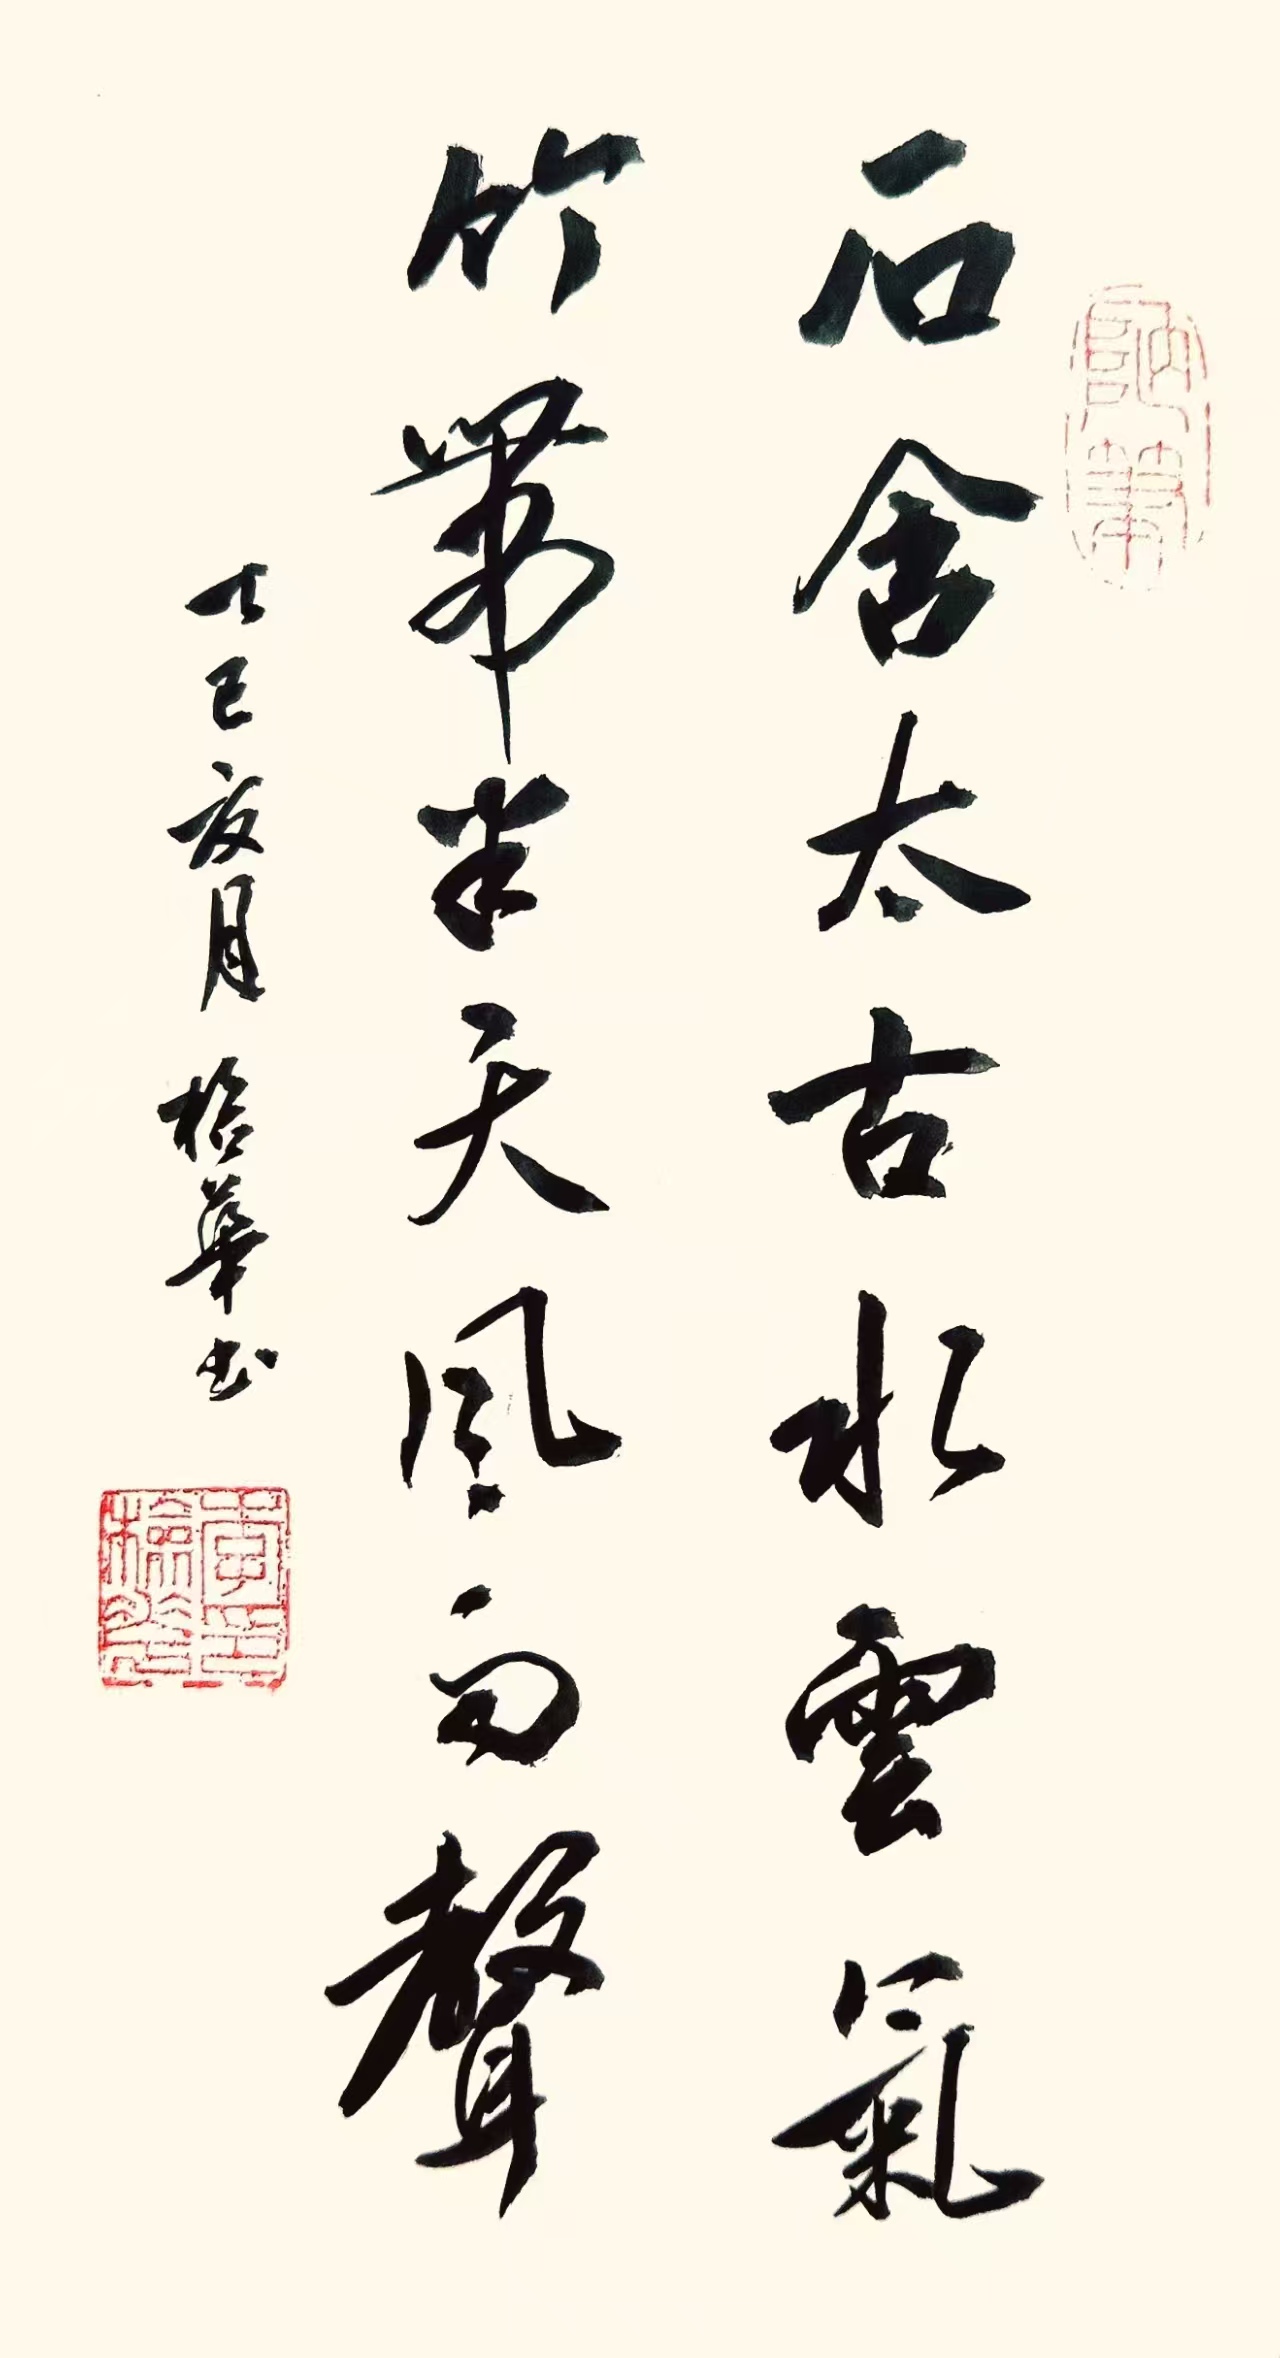 石含太古水雲氣
竹帶半天風雨聲
乙巳夏月 檢華书